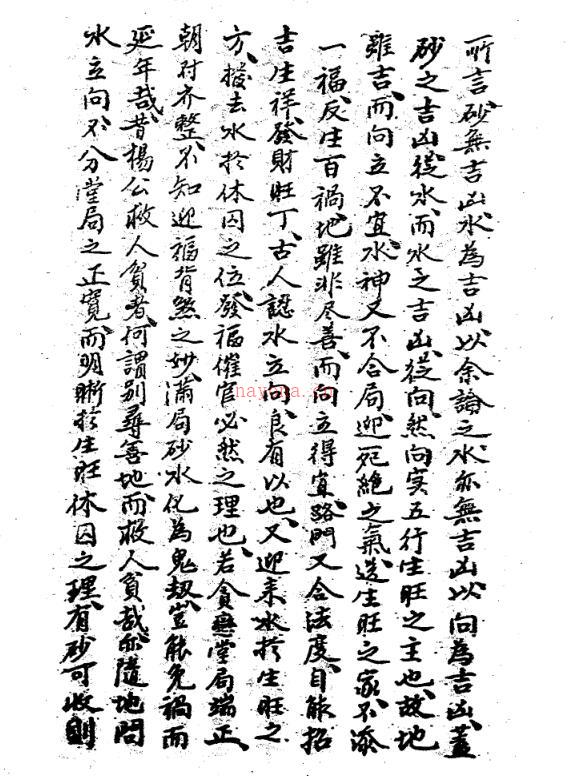 所言砂無吉凶水為吉凶以余論之水亦無吉凶以向為吉凶蓋
砂之吉凶從水而水之吉凶從向然向实五行生旺之主也故地
雖吉而向立不宜水神又不合局迎死絶之氣送生旺之家不添
一福反生百禍地雖非尽善而向立得宜路門又合法度自能招
吉生祥發財旺丁古人認水立向良有以也又迎来水扵生旺之
方撥去水扵休囚之位發福催官必然之理也若貪戀堂局端正
朝対齐整不知迎福背煞之妙满局砂水化為鬼刼豈能免禍而
延年哉昔楊公救人貧者何謂别尋善地而救人貧哉亦隨地問
水立向不分堂局之正寛而明晰扵生旺休囚之理有砂可收則
nayona.cn